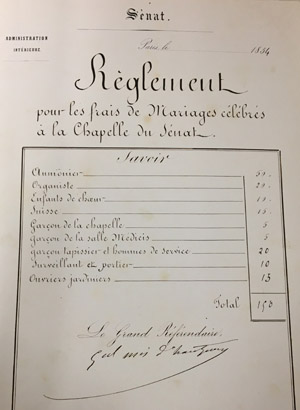 Sénat.
ADMINISTRATION
INTÉRIEURE
Paris le 1854
Règlement
pour les frais de Mariages célébrés
à la Chapelle du Sénat.
Savoir
Aumônier 50.
Organiste 20.
Enfants de chœur 15.
Suisse 15.
Garçon de la chapelle 5
Garçon de la salle Médicis 5
garçon tapissier et hommes de service 20
Surveillant et portier 10
Ouvriers jardiniers 13
Total 153
Le Grand Référendaire
Gal mis d'hautpoul